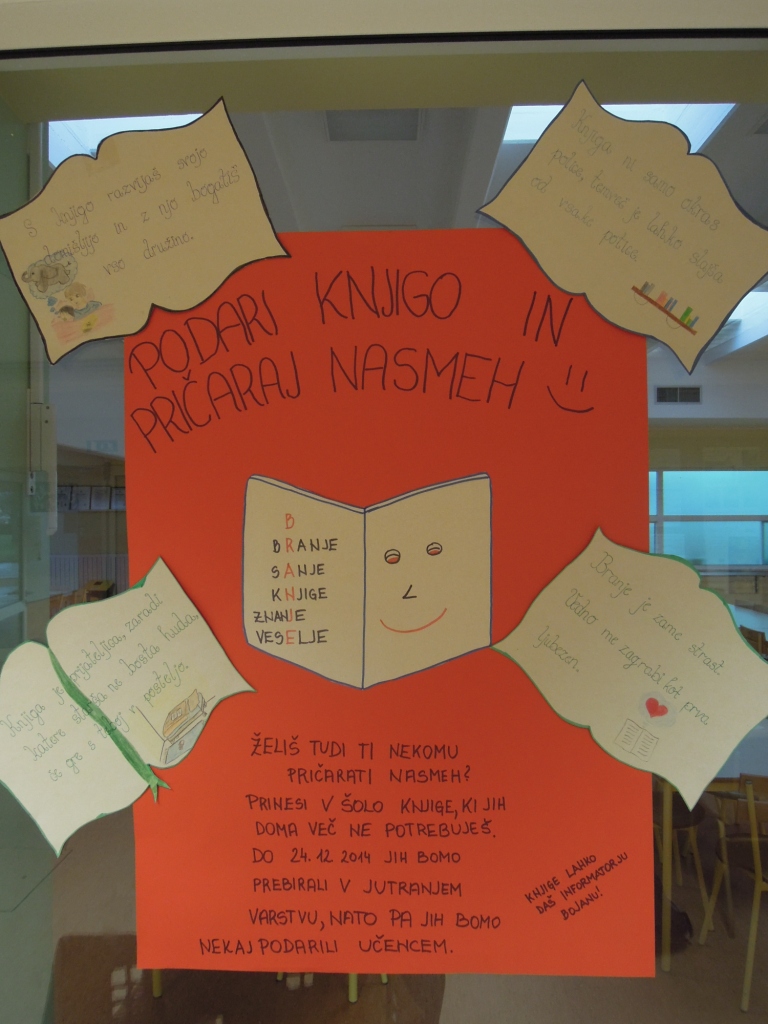 S knjigo razvijaš svojo
domišljijo in z njo bogatiš
vso družino.
Knjiga ni samo okras
police, temveč je lahko
od vsake police
PODARI KNJIGO IN
PRIČARAJ NASMEH :)
B
BRANJE
SANJE
KNJIGE
ZNANJE
VESELJE
Knjiga je prijateljica, zaradi
katere starša ne bosta huda,
če gre s teboj v posteljo.
Branje je zame strast.
Lahko me zagrabi kot prva
ljubezen.
ŽELIŠ TUDI TI NEKOMU
PRIČARATI NASMEH?
PRINESI V ŠOLO KNJIGE, KI JIH
DOMA VEČ NE POTREBUJEŠ.
DO 24.12.2014 JIH BOMO
PREBIRALI V JUTRANJEM
VARSTVU, NATO PA JIH BOMO
NEKAJ PODARILI UČENCEM.
KNJIGE LAHKO
DAŠ INFORMATORJU
BOJANU!